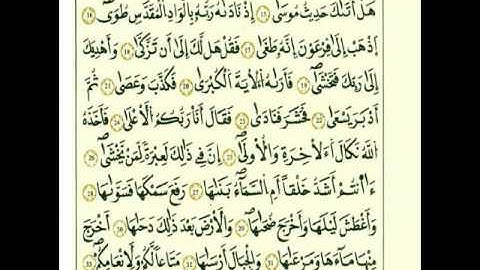 هَلْ أَتَىٰكَ حَدِيثُ مُوسَىٰ ١٥ إِذْ نَادَىٰهُ رَبُّهُۥ بِالْوَادِ الْمُقَدَّسِ طُوًى ١٦
اِذْهَبْ إِلَىٰ فِرْعَوْنَ إِنَّهُۥ طَغَىٰ ١٧ فَقُلْ هَل لَّكَ إِلَىٰ أَن تَزَكَّىٰ ١٨ وَأَهْدِيَكَ
إِلَىٰ رَبِّكَ فَتَخْشَىٰ ١٩ فَأَرَىٰهُ الْأٓيَةَ الْكُبْرَىٰ ٢٠ فَكَذَّبَ وَعَصَىٰ ٢١ ثُمَّ
أَدْبَرَ يَسْعَىٰ ٢٢ فَحَشَرَ فَنَادَىٰ ٢٣ فَقَالَ أَنَا۠ رَبُّكُمُ الْأَعْلَىٰ ٢٤ فَأَخَذَهُ
اللَّهُ نَكَالَ الْأٓخِرَةِ وَالْأُولَىٰ ٢٥ إِنَّ فِي ذَٰلِكَ لَعِبْرَةً لِّمَن يَخْشَىٰ ٢٦
ءَأَنتُمْ أَشَدُّ خَلْقًا أَمِ السَّمَآءُ بَنَىٰهَا ٢٧ رَفَعَ سَمْكَهَا فَسَوَّىٰهَا ٢٨
وَأَغْطَشَ لَيْلَهَا وَأَخْرَجَ ضُحَىٰهَا ٢٩ وَالْأَرْضَ بَعْدَ ذَٰلِكَ دَحَىٰهَا ٣٠ أَخْرَجَ
مِنْهَا مَآءَهَا وَمَرْعَىٰهَا ٣١ وَالْجِبَالَ أَرْسَىٰهَا ٣٢ مَتَاعًا لَّكُمْ وَلِأَنْعَامِكُمْ ٣٣